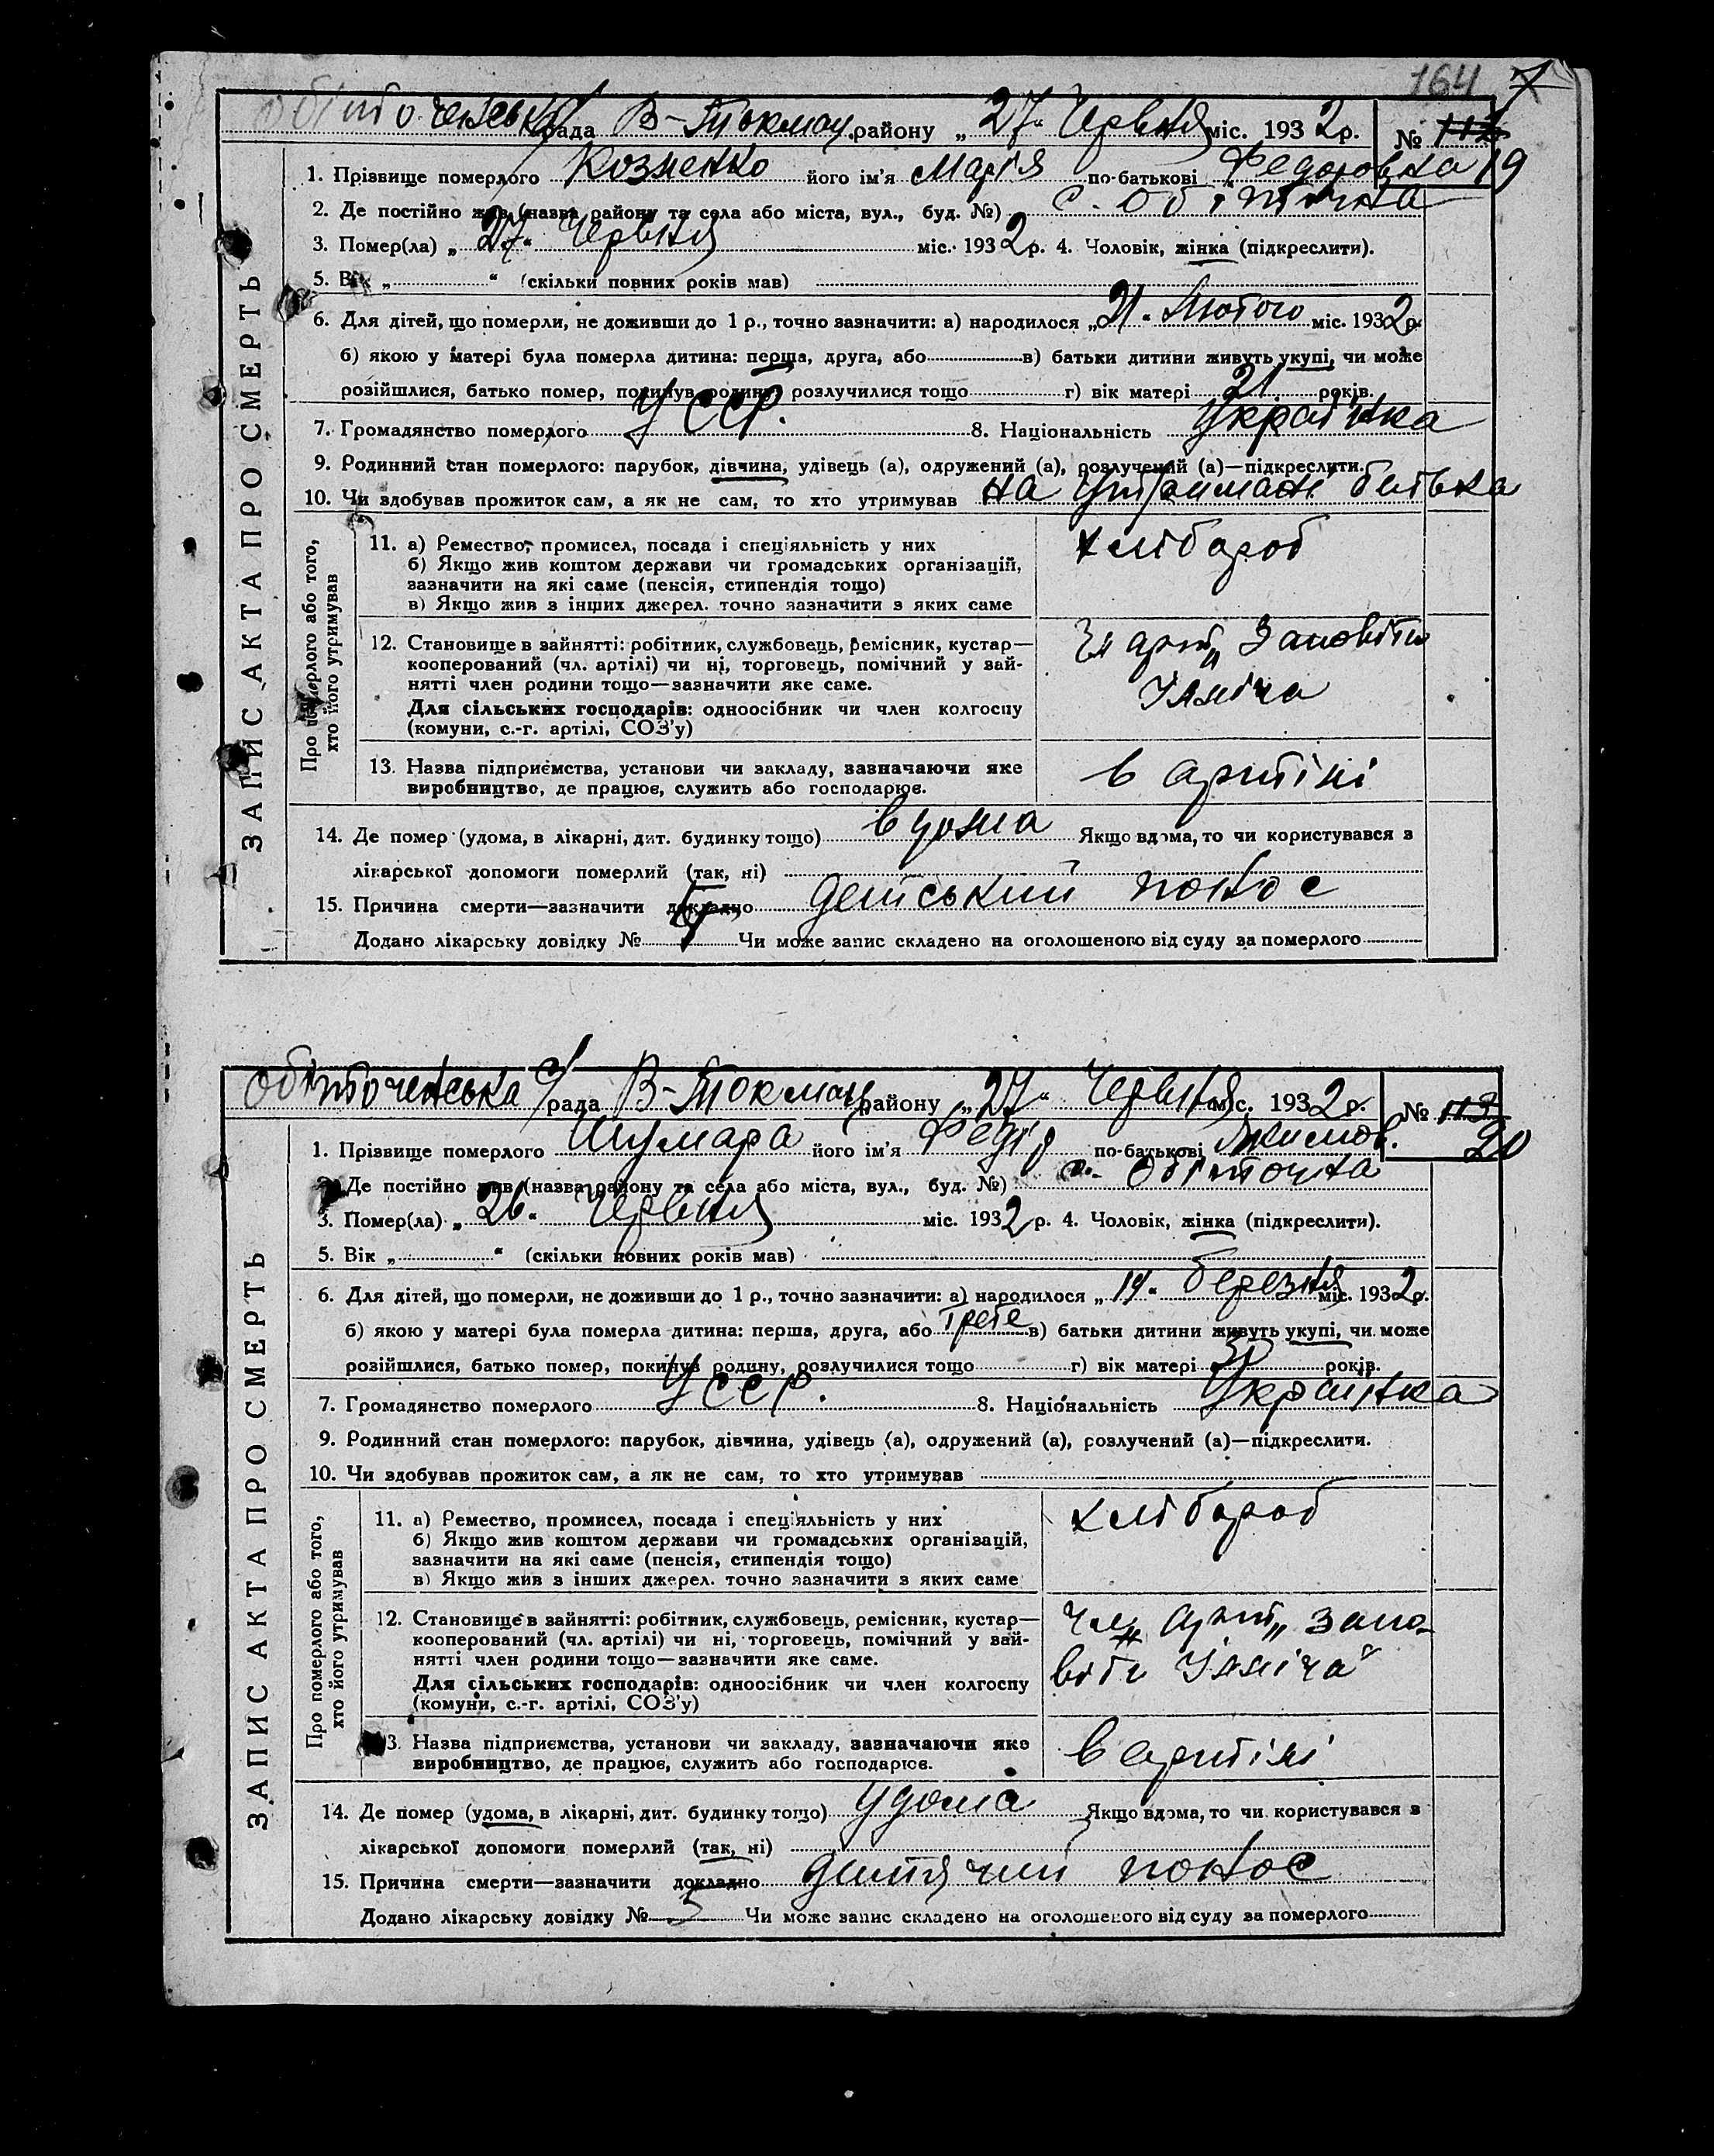 164
Обіточенська с/рада В-Токмац. району „27“ Червня міс. 1932 р. № 112
19
1. Прізвище померлого Козненко його ім'я Марія по-батькові Федоровна
2. Де постійно жив (назва району та села або міста, вул., буд. №) с. Обіточна
3. Помер(ла) „27“ Червня міс. 1932 р. 4. Чоловік, жінка (підкреслити).
5. Вік „ “ (скільки повних років мав)
6. Для дітей, що померли, не доживши до 1 р., точно зазначити: а) народилося „21“ Лютого міс. 1932 р.
б) якою у матері була померла дитина: перша, друга, або в) батьки дитини живуть укупі, чи може
розійшлися, батько помер, покинув родину, розлучилися тощо г) вік матері 21 років.
7. Громадянство померлого УССР. 8. Національність Українка
9. Родинний стан померлого: парубок, дівчина, удівець (а), одружений (а), розлучений (а)—підкреслити.
10. Чи здобував прожиток сам, а як не сам, то хто утримував на утримані батька
ЗАПИС АКТА ПРО СМЕРТЬ
Про померлого або того, хто його утримував
11. а) Ремество, промисел, посада і спеціяльність у них хлібороб
б) Якщо жив коштом держави чи громадських організацій,
зазначити на які саме (пенсія, стипендія тощо)
в) Якщо жив з інших джерел. точно зазначити з яких саме
12. Становище в зайнятті: робітник, службовець, ремісник, кустар— Чл арт „Заповіти
кооперований (чл. артілі) чи ні, торговець, помічний у зай-
нятті член родини тощо—зазначити яке саме. Ілліча
Для сільських господарів: одноосібник чи член колгоспу
(комуни, с.-г. артілі, СОЗ'у)
13. Назва підприємства, установи чи закладу, зазначаючи яке в артілі
виробництво, де працює, служить або господарює.
14. Де помер (удома, в лікарні, дит. будинку тощо) вдома Якщо вдома, то чи користувався з
лікарської допомоги померлий (так, ні)
15. Причина смерти—зазначити докладно детський понос
Додано лікарську довідку № 4 Чи може запис складено на оголошеного від суду за померлого
Обіточенська с/рада В-Токмац району „27“ Червня міс. 1932 р. № 113
20
1. Прізвище померлого Шумара його ім'я Федір по-батькові Якимов.
2. Де постійно жив (назва району та села або міста, вул., буд. №) с. Обіточна
3. Помер(ла) „26“ Червня міс. 1932 р. 4. Чоловік, жінка (підкреслити).
5. Вік „ “ (скільки повних років мав)
6. Для дітей, що померли, не доживши до 1 р., точно зазначити: а) народилося „19“ березня міс. 1932 р.
б) якою у матері була померла дитина: перша, друга, або трете в) батьки дитини живуть укупі, чи може
розійшлися, батько помер, покинув родину, розлучилися тощо г) вік матері 30 років.
7. Громадянство померлого УССР. 8. Національність Українка
9. Родинний стан померлого: парубок, дівчина, удівець (а), одружений (а), розлучений (а)—підкреслити.
10. Чи здобував прожиток сам, а як не сам, то хто утримував
ЗАПИС АКТА ПРО СМЕРТЬ
Про померлого або того, хто його утримував
11. а) Ремество, промисел, посада і спеціяльність у них хлібороб
б) Якщо жив коштом держави чи громадських організацій,
зазначити на які саме (пенсія, стипендія тощо)
в) Якщо жив з інших джерел. точно зазначити з яких саме
12. Становище в зайнятті: робітник, службовець, ремісник, кустар— Чл. арт „Запо-
кооперований (чл. артілі) чи ні, торговець, помічний у зай-
нятті член родини тощо—зазначити яке саме. віти Ілліча“
Для сільських господарів: одноосібник чи член колгоспу
(комуни, с.-г. артілі, СОЗ'у)
13. Назва підприємства, установи чи закладу, зазначаючи яке в артілі
виробництво, де працює, служить або господарює.
14. Де помер (удома, в лікарні, дит. будинку тощо) удома Якщо вдома, то чи користувався з
лікарської допомоги померлий (так, ні)
15. Причина смерти—зазначити докладно дитячий понос
Додано лікарську довідку № 5 Чи може запис складено на оголошеного від суду за померлого